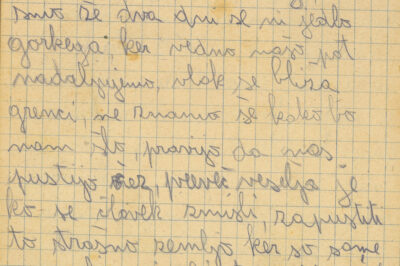 smo že dva dni se ni jedlo
gorkega, ker vedno našo pot
nadaljujemo, vlak se bliža
grenci, ne znamo še kako bo
nam šlo, pravijo da nas
pustijo čez, preveč veselja je
ko se človek zmisli, zapustiti
to strašno zemljo ker so same